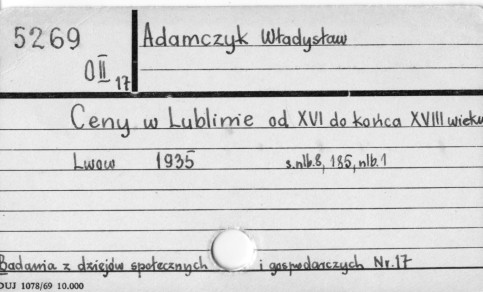 5269
OII 17
Adamczyk Władysław
Ceny w Lublinie od XVI do końca XVIII wieku
Lwow 1935 s.nlb.8, 185, nlb.1
Badania z dziejów społecznych i gospodarczych Nr.17
DUJ 1078/69 10.000